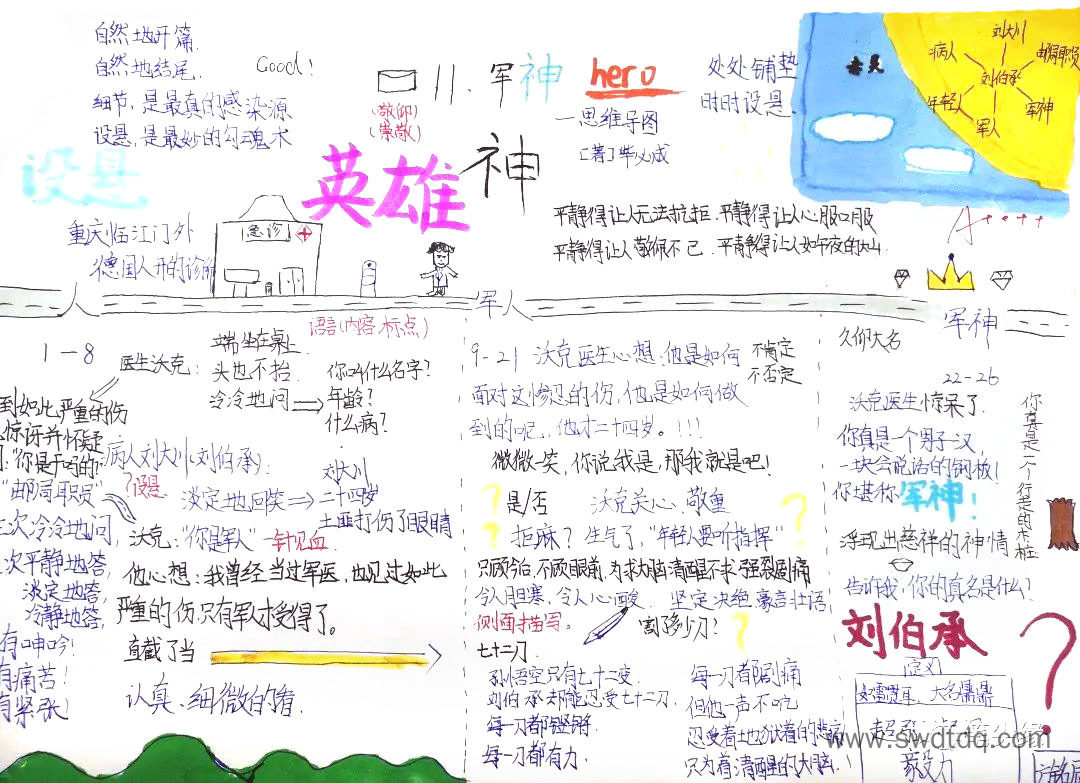 自然地开篇.
自然地结尾.
Good!
细节,是最真的感染源
设悬,是最妙的勾魂术
设悬
11.军神
hero
(敬仰)
(崇敬)
一思维导图
[著]
处处铺垫
时时设悬
刘大川
病人
邮局职员
刘伯承
年轻人
军人
军神
英雄
神
平静得让人无法抗拒.平静得让人心服口服
平静得让人敬佩不已.平静得让人如午夜的大山
A++++
重庆临江门外
德国人开的诊所
急诊
人
军人
军神
语言(内容.标点)
1-8
医生沃克:
端坐在桌上
头也不抬
冷冷地问
你叫什么名字?
年龄?
什么病?
到如此严重的伤
惊讶并怀疑
"你是干吗的"
"邮局职员"
?设悬
病人刘大川(刘伯承):
淡定地回答
刘大川
二十四岁
土匪打伤了眼睛
沃克:"你是军人"
一针见血
次冷冷地问,
次平静地答,
淡定地答,
冷静地答,
有呻吟!
有痛苦!
有紧张!
他心想:我曾经当过军医,也见过如此
严重的伤只有军人才受得了。
直截了当
认真、细微的看.
9-21
沃克医生心想:他是如何
面对这惨忍的伤,他是如何做
到的呢,他才二十四岁。!!!
不肯定
不否定
微微一笑,你说我是,那我就是吧!
?
是/否
沃克关心、敬重
?
?
拒麻?
生气了,"年轻人要听指挥"
只顾今后,不顾眼前,为求大脑清醒不求强裂剧痛
令人胆寒,令人心酸.
坚定决绝、豪言壮语
侧面描写。
割了多少刀?
?
七十二刀.
孙悟空只有七十二变.
刘伯承却能忍受七十二刀.
每一刀都铿锵
每一刀都有力.
每一刀都剧痛
但他一声不吭
忍受着地狱着的悲痛
只为着清醒的大脑.!
久仰大名
22-26
沃克医生惊呆了.
你真是一个男子汉,
一块会说话的钢板!
你堪称军神!
你真是一个行走的木桩
浮现出慈祥的神情
告诉我,你的真名是什么?
刘伯承
?
定义
如雷贯耳、大名鼎鼎
毅力
www.swdtdq.com